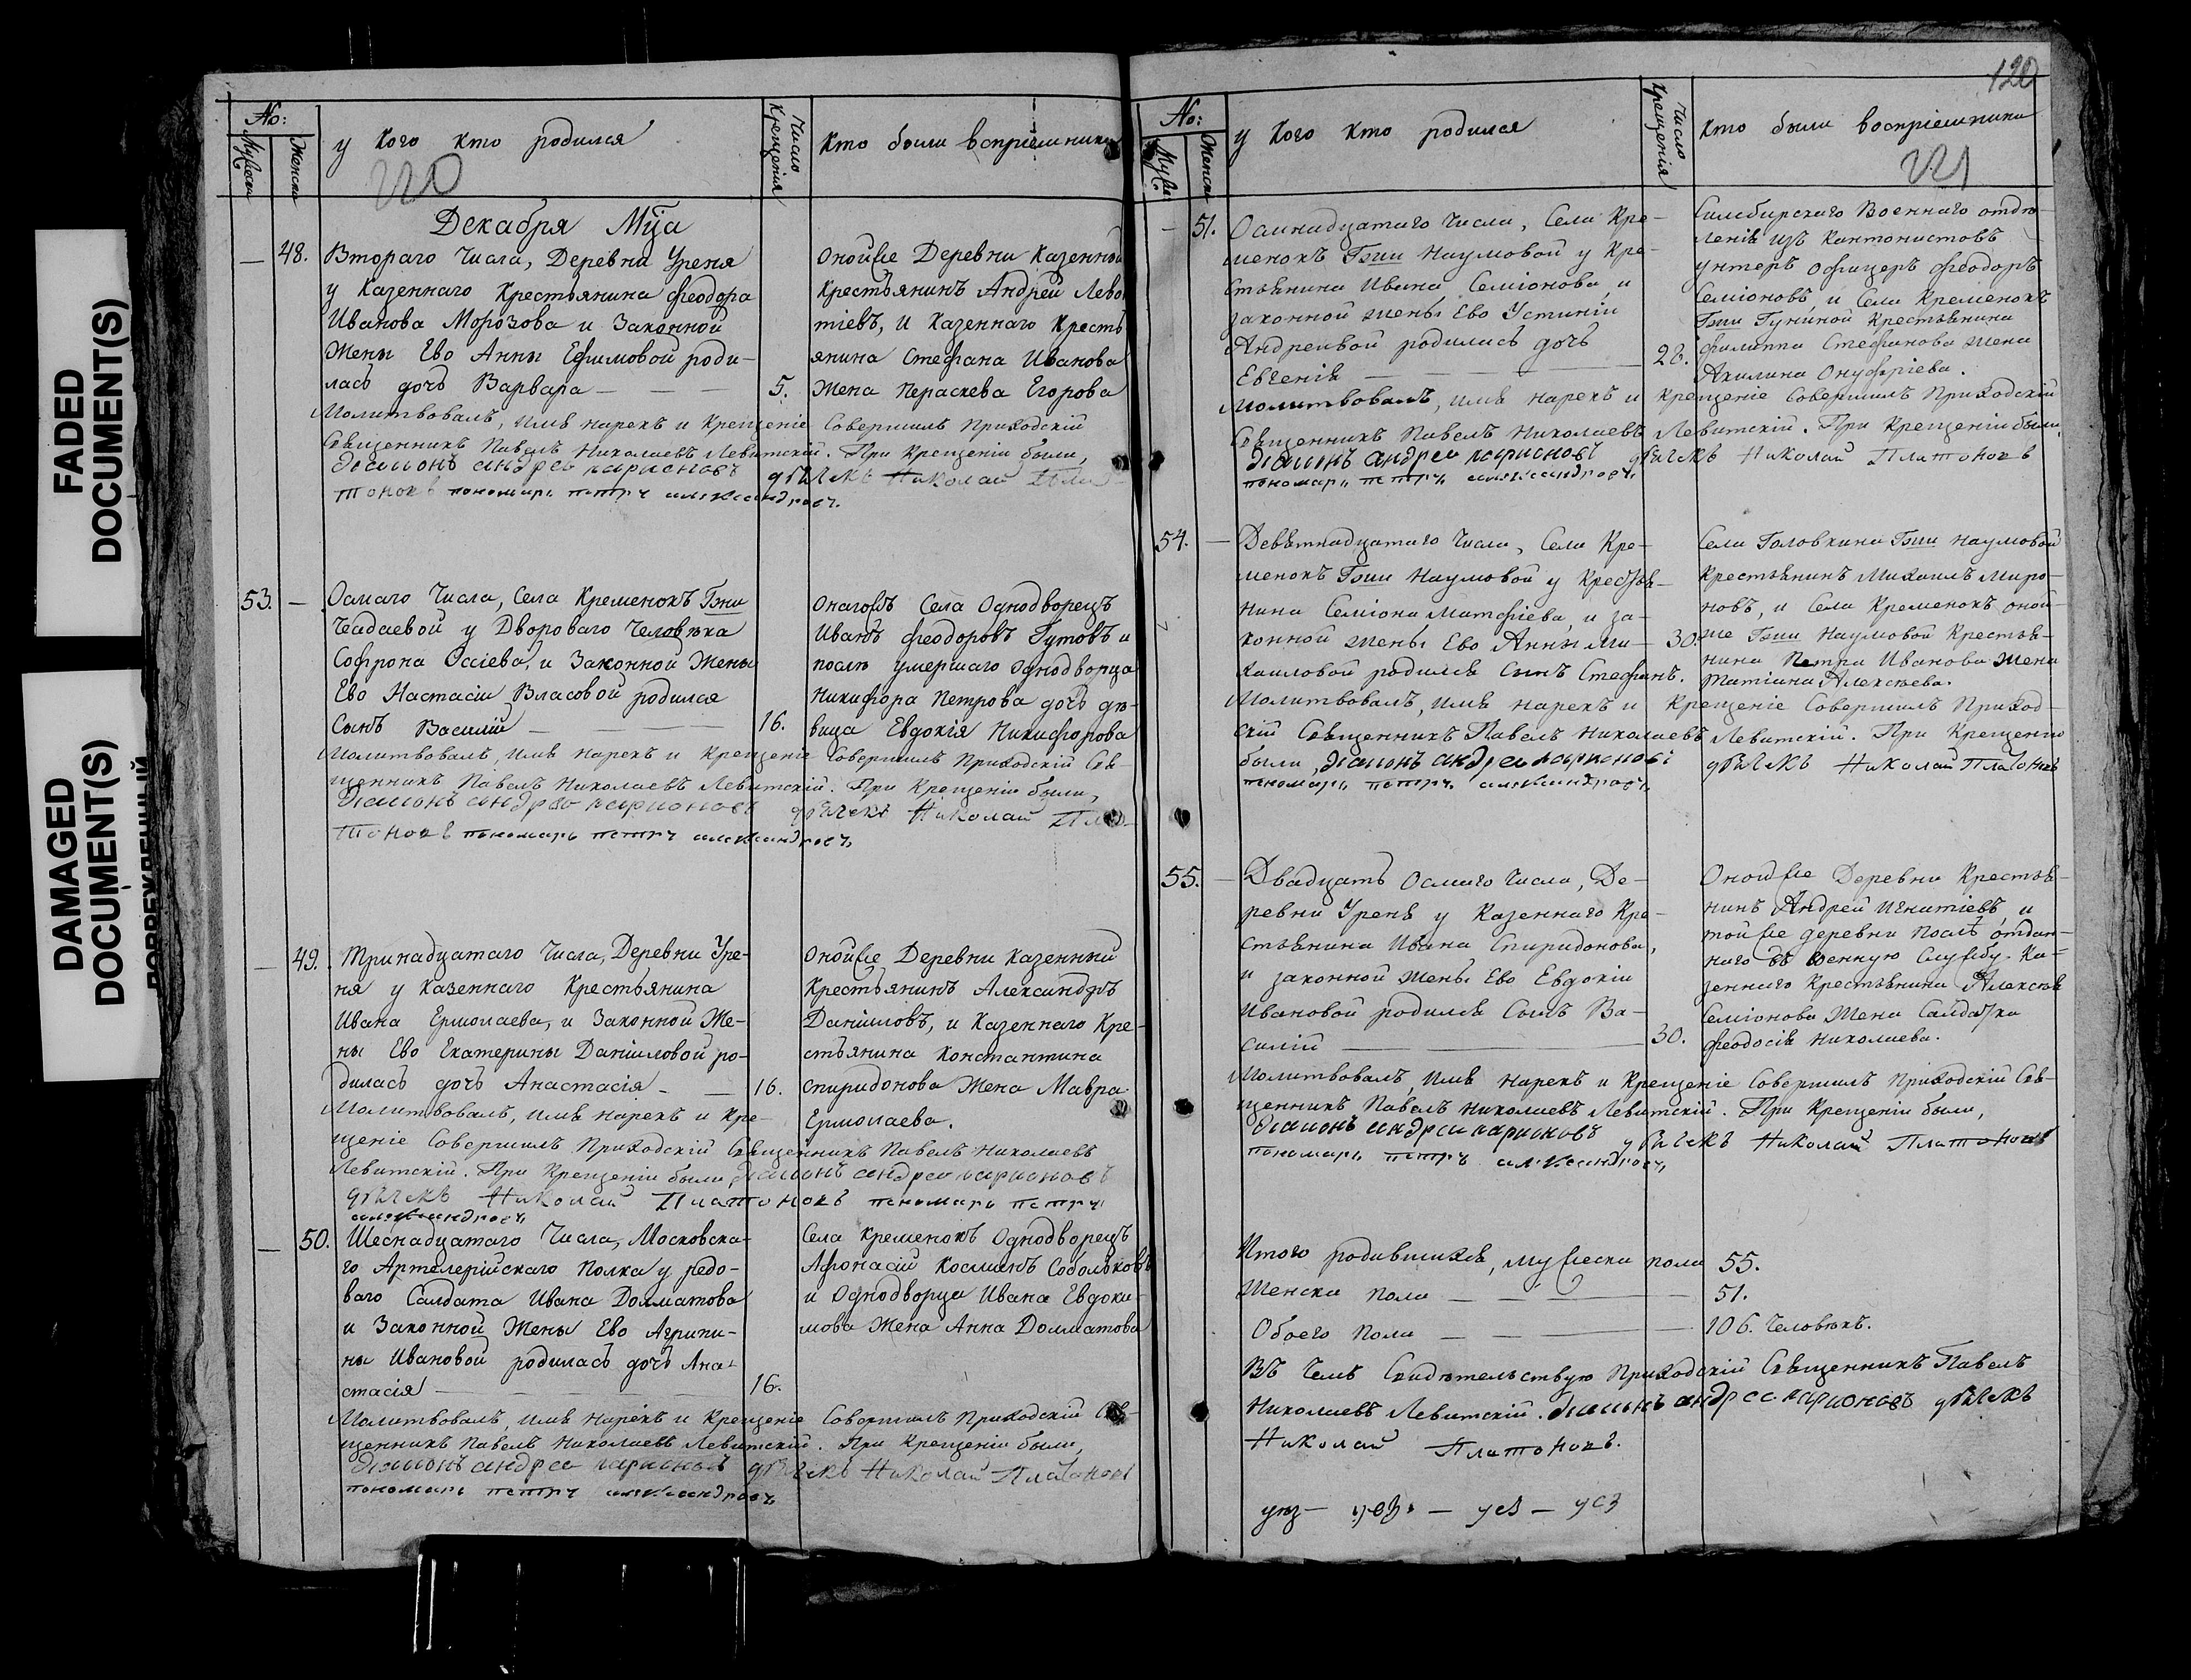 FADED
DOCUMENT(S)
DAMAGED
DOCUMENT(S)
No:
Мужеска
Женска
у кого кто родился
Число Крещенія
Кто были воспріемники
220
Декабря Мца
48.
Втораго Числа, Деревни Уреня
у Казеннаго Крестьянина Феодора
Иванова Морозова и Законной
Жены Ево Анны Ефимовой роди-
лась дочь Варвара
5.
Оной же Деревни Казенной
Крестьянинъ Андрей Лево
тіевъ, и Казеннаго Кресть
янина Стефана Иванова
Жена Параскева Егорова
Молитвовалъ, имя нарекъ и Крещеніе Совершилъ Приходскій
Священникъ Павелъ Николаевъ Левитскій. При Крещеніи были,
діаконъ андреи ларионовъ дьячекъ Николай Пла-
тоновъ пономарь петръ александровъ
53.
Осмаго Числа, Села Кременокъ Гжи
Чадаевой у Двороваго Человѣка
Софрона Осіева, и Законной Жены
Ево Настасіи Власовой родился
Сынъ Василій
16.
Онагожъ Села Однодворецъ
Иванъ Феодоровъ Гутовъ и
послѣ умершаго Однодворца
Никифора Петрова дочь дѣ-
вица Евдокія Никифорова
Молитвовалъ, имя нарекъ и Крещеніе Совершилъ Приходскій Свя-
щенникъ Павелъ Николаевъ Левитскій. При Крещеніи были,
діаконъ андреи ларионовъ дьячекъ Николай Пла-
тоновъ пономарь петръ александровъ
49.
Тринадцатаго Числа, Деревни Уре-
ня у Казеннаго Крестьянина
Ивана Ермолаева, и Законной Же-
ны Ево Екатерины Даниловой ро-
дилась дочь Анастасія
16.
Оной же Деревни Казенный
Крестьянинъ Александръ
Даниловъ, и Казеннаго Кре-
стьянина Константина
Спиридонова Жена Мавра
Ермолаева.
Молитвовалъ, имя нарекъ и Кре-
щеніе Совершилъ Приходскій Священникъ Павелъ Николаевъ
Левитскій. При Крещеніи были, діаконъ андреи ларионовъ
дьячекъ Николай Платоновъ пономарь петръ
александровъ
50.
Шеснадцатаго Числа, Московска-
го Артелерійскаго Полка у рядо-
ваго Салдата Ивана Долматова
и Законной Жены Ево Агрипи-
ны Ивановой родилась дочь Ана-
стасія
16.
Села Кременокъ Однодворецъ
Афонасій Косминъ Собольковъ
и Однодворца Ивана Евдоки-
мова Жена Анна Долматова
Молитвовалъ, имя нарекъ и Крещеніе Совершилъ Приходскій Свя-
щенникъ Павелъ Николаевъ Левитскій. При Крещеніи были,
діаконъ андреи ларионовъ дьячекъ Николай Платоновъ
пономарь петръ александровъ
120
No:
Муже
Женска
у Кого Кто родился
Число Крещенія
Кто были воспріемники
221
51.
Осмнадцатаго Числа, Села Кре-
менокъ Гжи Наумовой у Кре-
стьянина Ивана Семіонова и
законной жены Ево Устиніи
Андреевой родилась дочь
Евгенія
20.
Симбирскаго Военнаго отдѣ-
ленія изъ Кантонистовъ
унтеръ офицеръ Феодоръ
Семіоновъ, и Села Кременокъ
Гжи Гуниной Крестьянина
Филиппа Стефанова жена
Акилина Онуфріева.
Молитвовалъ, имя нарекъ и Крещеніе Совершилъ Приходскій
Священникъ Павелъ Николаевъ Левитскій. При Крещеніи были,
діаконъ андреи ларионовъ дьячекъ Николай Платоновъ
пономарь петръ александровъ
54.
Девятнадцатаго Числа, Села Кре-
менокъ Гжи Наумовой у Крестья-
нина Семіона Матфіева, и за-
конной жены Ево Анны Ми-
хаиловой родился Сынъ Стефанъ.
30.
Села Головкина Гжи Наумовой
Крестьянинъ Михаилъ Миро-
новъ, и Села Кременокъ оной
же Гжи Наумовой Крестья-
нина Петра Иванова Жена
Татіана Алексѣева.
Молитвовалъ, имя нарекъ и Крещеніе Совершилъ Приход-
скій Священникъ Павелъ Николаевъ Левитскій. При Крещеніи
были, діаконъ андреи ларионовъ дьячекъ Николай Платоновъ
пономарь петръ александровъ
55.
Двадцать Осмаго Числа, Де-
ревни Уреня у Казеннаго Кре-
стьянина Ивана Спиридонова,
и законной жены Ево Евдокіи
Ивановой родился Сынъ Ва-
силій
30.
Оной же Деревни Крестья-
нинъ Андрей Игнатіевъ, и
той же деревни послѣ отдан-
наго въ военную Службу Ка-
зеннаго Крестьянина Алексѣя
Семіонова Жена Салдатка
Феодосія Николаева.
Молитвовалъ, имя нарекъ и Крещеніе Совершилъ Приходскій Свя-
щенникъ Павелъ Николаевъ Левитскій. При Крещеніи были,
діаконъ андреи ларионовъ дьячекъ Николай Платоновъ
пономарь петръ александровъ
Итого родившихся, мужеска пола 55.
Женска пола 51.
Обоего пола 106. Человѣкъ.
Въ чемъ Свидѣтельствую Приходскій Священникъ Павелъ
Николаевъ Левитскій. діаконъ андреи ларионовъ дьячекъ
Николай Платоновъ.